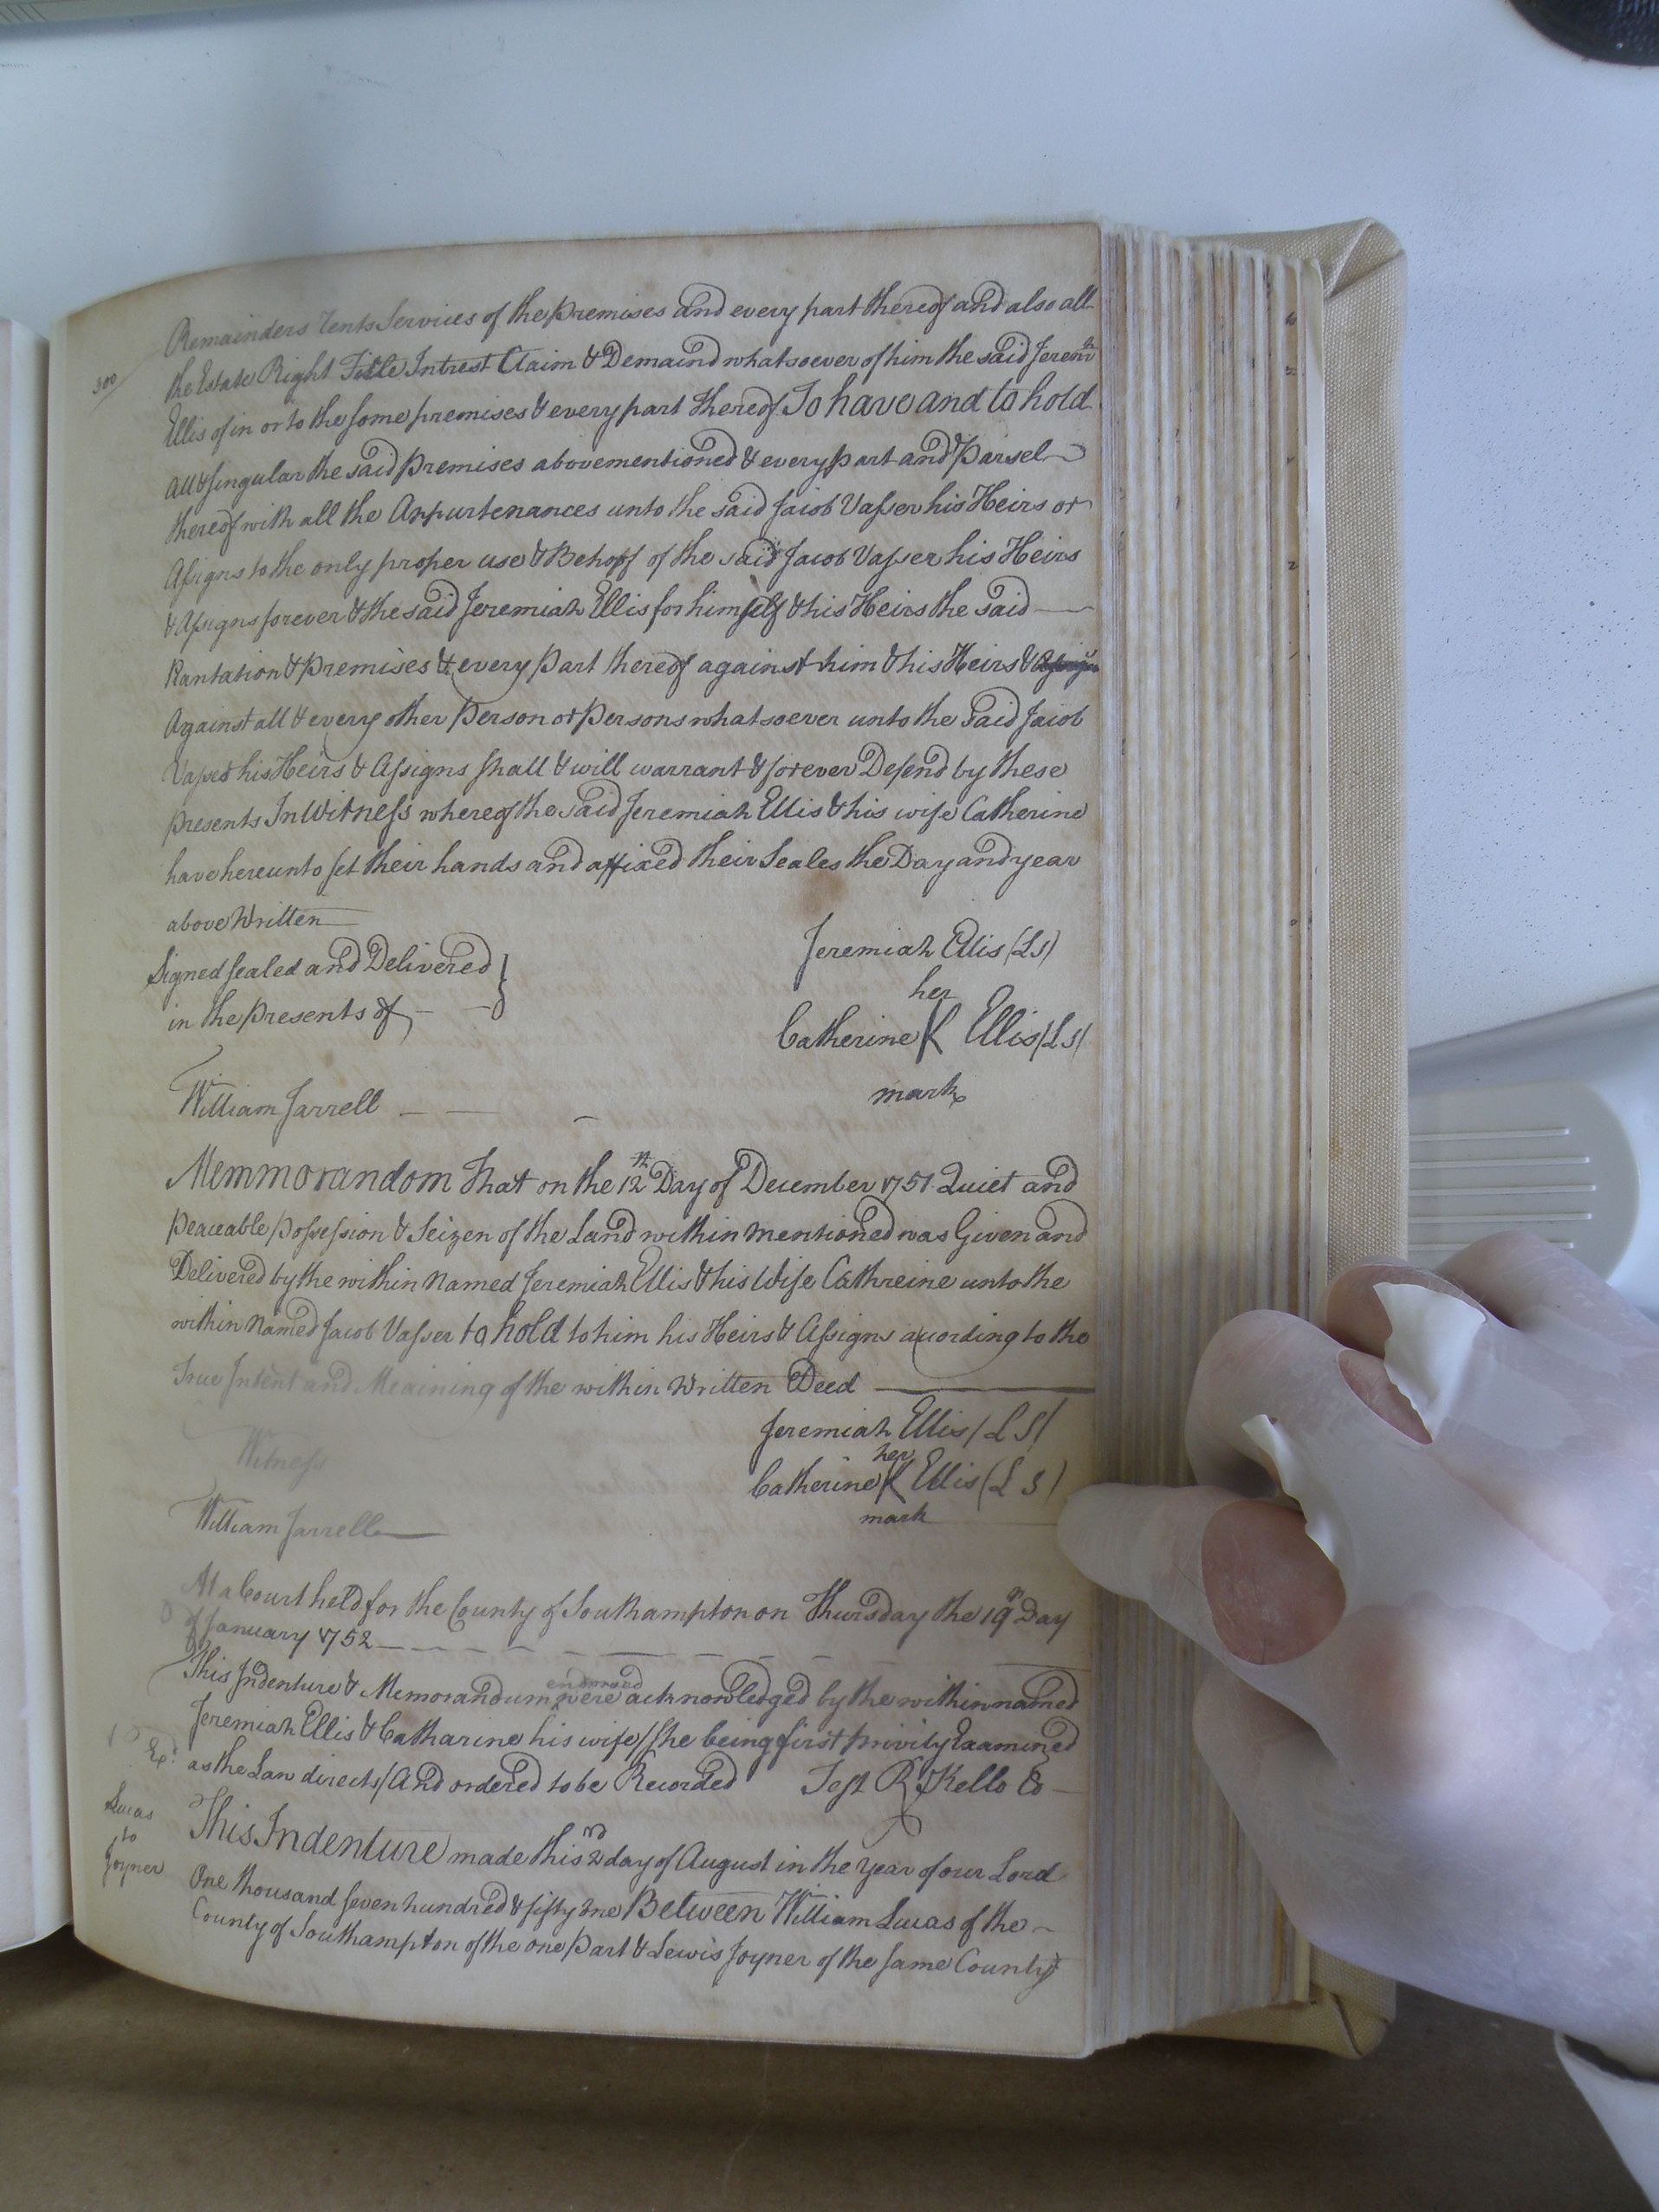 300
Remainders rents Services of the premises and every part thereof and also all
the Estate Right Title Intrest Claim & Demaind whatsoever of him the said Jeremh
Ellis of in or to the same premises & every part thereof To have and to hold
all & singular the said premises abovementioned & every part and Parsel
thereof with all the Appurtenances unto the said Jacob Vasser his Heirs or
Assigns to the only proper use & Behoff of the said Jacob Vasser his Heirs
& Assigns forever & the said Jeremiah Ellis for himself & his Heirs the said
Plantation & Premises & every part thereof against him & his Heirs &
Against all & every other Person or Persons whatsoever unto the said Jacob
Vasser his Heirs & Assigns shall & will warrant & forever Defend by these
presents In Witness whereof the said Jeremiah Ellis & his wife Catherine
have hereunto set their hands and affixed their Seales the Day and year
above Written
Signed sealed and Delivered }
in the presents of
Jeremiah Ellis (LS)
her
Catherine K Ellis (LS)
mark
William Jarrell
Memmorandom That on the 12th Day of December 1751 Quiet and
peaceable possession & Seizen of the Land within mentioned was Given and
Delivered by the within named Jeremiah Ellis & his Wife Cathreine unto the
within Named Jacob Vasser to hold to him his Heirs & Assigns acording to the
True Intent and Meaining of the within Written Deed
Jeremiah Ellis (LS)
her
Catherine K Ellis (LS)
mark
Witness
William Jarrell
At a Court held for the County of Southampton on Thursday the 19th Day
of January 1752
This Indenture & Memorandum endorsed were acknowledged by the within named
Jeremiah Ellis & Catharine his wife (she being first privily Examined
Ex:d as the Law directs) And ordered to be Recorded Test R Kello Co
Lucas
to
Joyner
This Indenture made this 2nd day of August in the year of our Lord
One thousand seven hundred & fifty one Between William Lucas of the
County of Southampton of the one part & Lewis Joyner of the same County